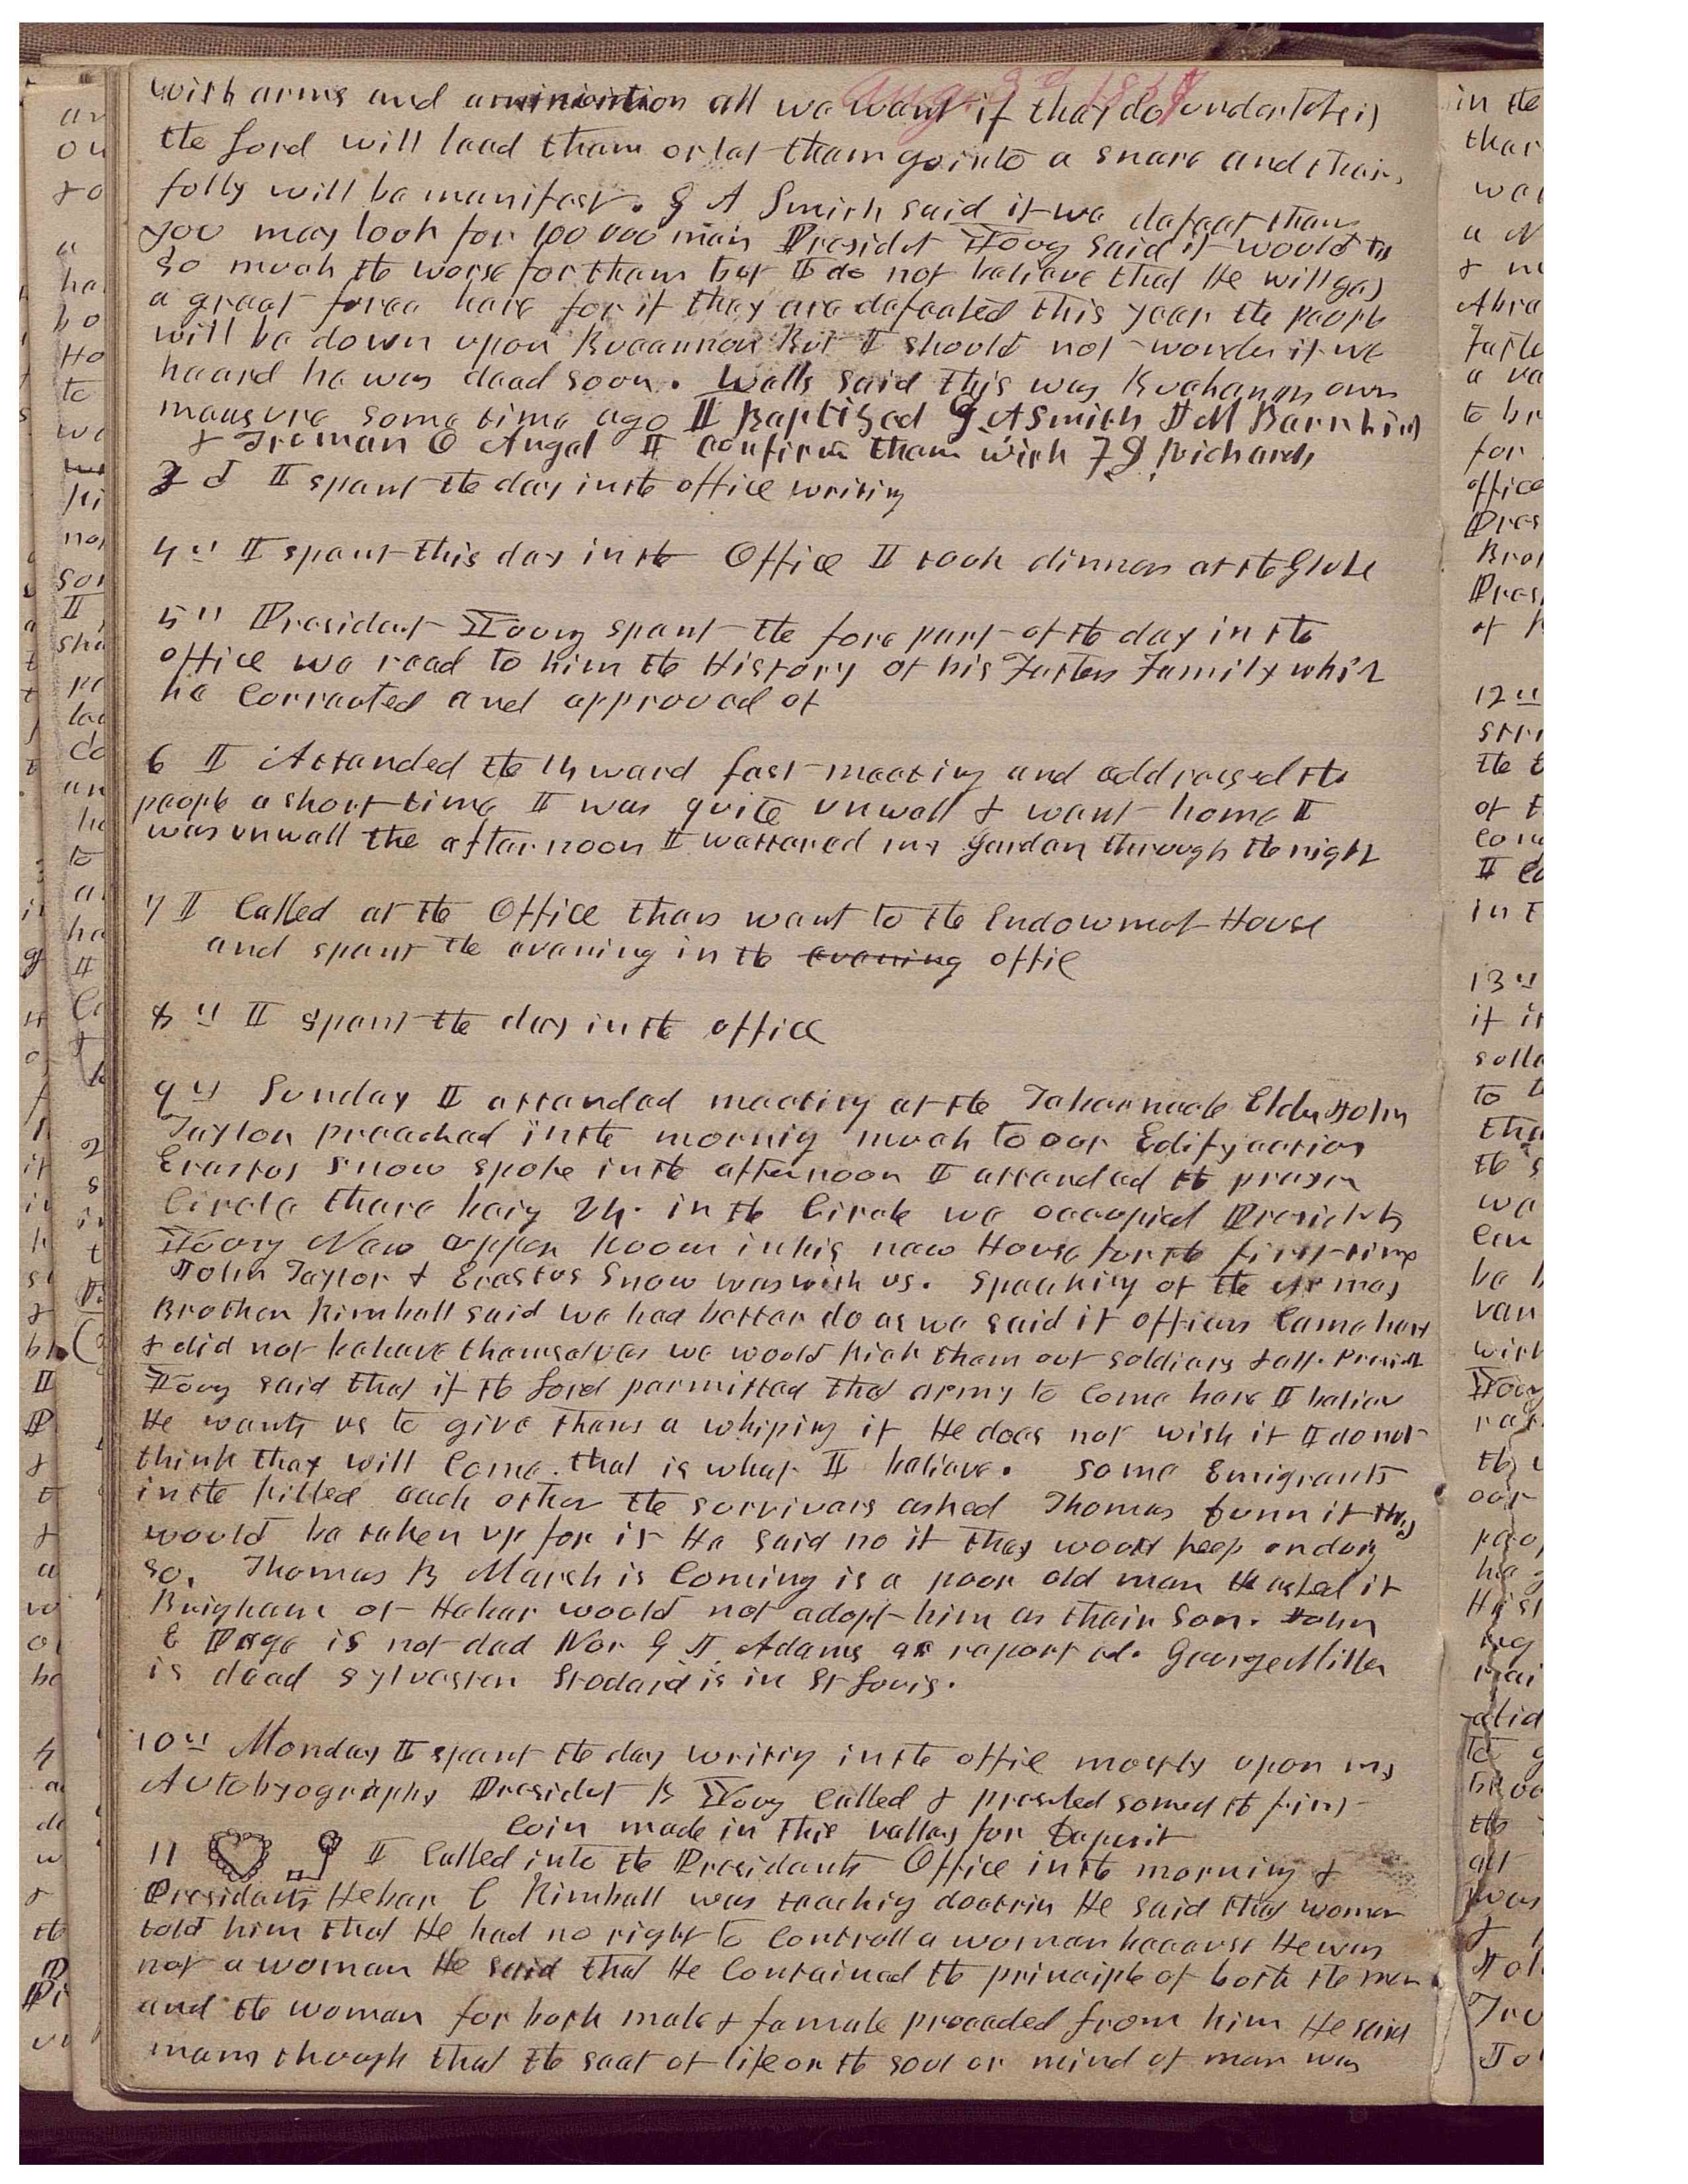 Aug. 3d 1857
with arms and aminiontion all we want if they do undertake it
the Lord will lead them or let them go into a snare and their
folly will be manifest. G A Smith said if we defeat them
you may look for 100000 men President Young said it would be
so much the worse for them but I do not believe that He will get
a great force here for if they are defeated this year the people
will be down upon Bucannon But I should not wonder if we
heard he was dead soon. Wells said this was Buchanans own
measure some time ago I Baptised G. A Smith J M Barnhisel
& Truman O Angel I confirm them with F D. Richards
3d I spent the day in the office writing
4th I spent this day in the Office I took dinner at the Globe
5th President Young spent the fore part of the day in the
office we read to him the History of his Fathers Family which
he Corrected and approved of
6 I Attended the 14 ward fast meeting and addressed the
people a short time I was quite unwell & went home I
was unwell the afternoon I wattered my garden through the night
7 I Called at the Office then went to the Endowmet House
and spent the evening in the evening offic
8th I spent the day in the office
9th Sunday I attended meeting at the Tabernacle Elder John
Taylor preached in the mornig much to our Edifycation
Erastus Snow spoke in the afternoon I attended the prayer
Circle there beig 24. in the Circle we occupied Presidets
Young New upper Room in his new House for the first time
John Taylor & Erastus Snow was with us. speaking of the army
Brother Kimball said we had better do as we said if officers Came here
& did not behave themselves we would kick them out soldiers & all. Presidt
Young said that if the Lord permitted that army to Come here I believe
He wants us to give them a whiping if He does not wish it I do not
think they will Come. that is what I believe. some Emigrants
in the killed each other the survivers asked Thomas Dunn if they
would be taken up for it He said no if they would keep on doing
so. Thomas B March is Coming is a poor old man He asked if
Brigham or Heber would not adopt him as their Son. John
E Page is not dead Nor G J. Adams as reported. George Miller
is dead Sylvester Stodard is in St Louis.
10th Monday I spent the day writing in the offic mostly upon my
Autobyography Presidet B Young Called & preseted some of the first
Coin made in this valley for Deposit
11 I Called into the Presidents Office in the morning &
Presidents Heber C Kimball was teaching doctrin He said that women
told him that He had no right to Controll a woman because He was
not a woman He said that He Contained the principle of both the man
and the woman for both male & female proceded from him He said
many though that the seat of life or the soul or mind of man was